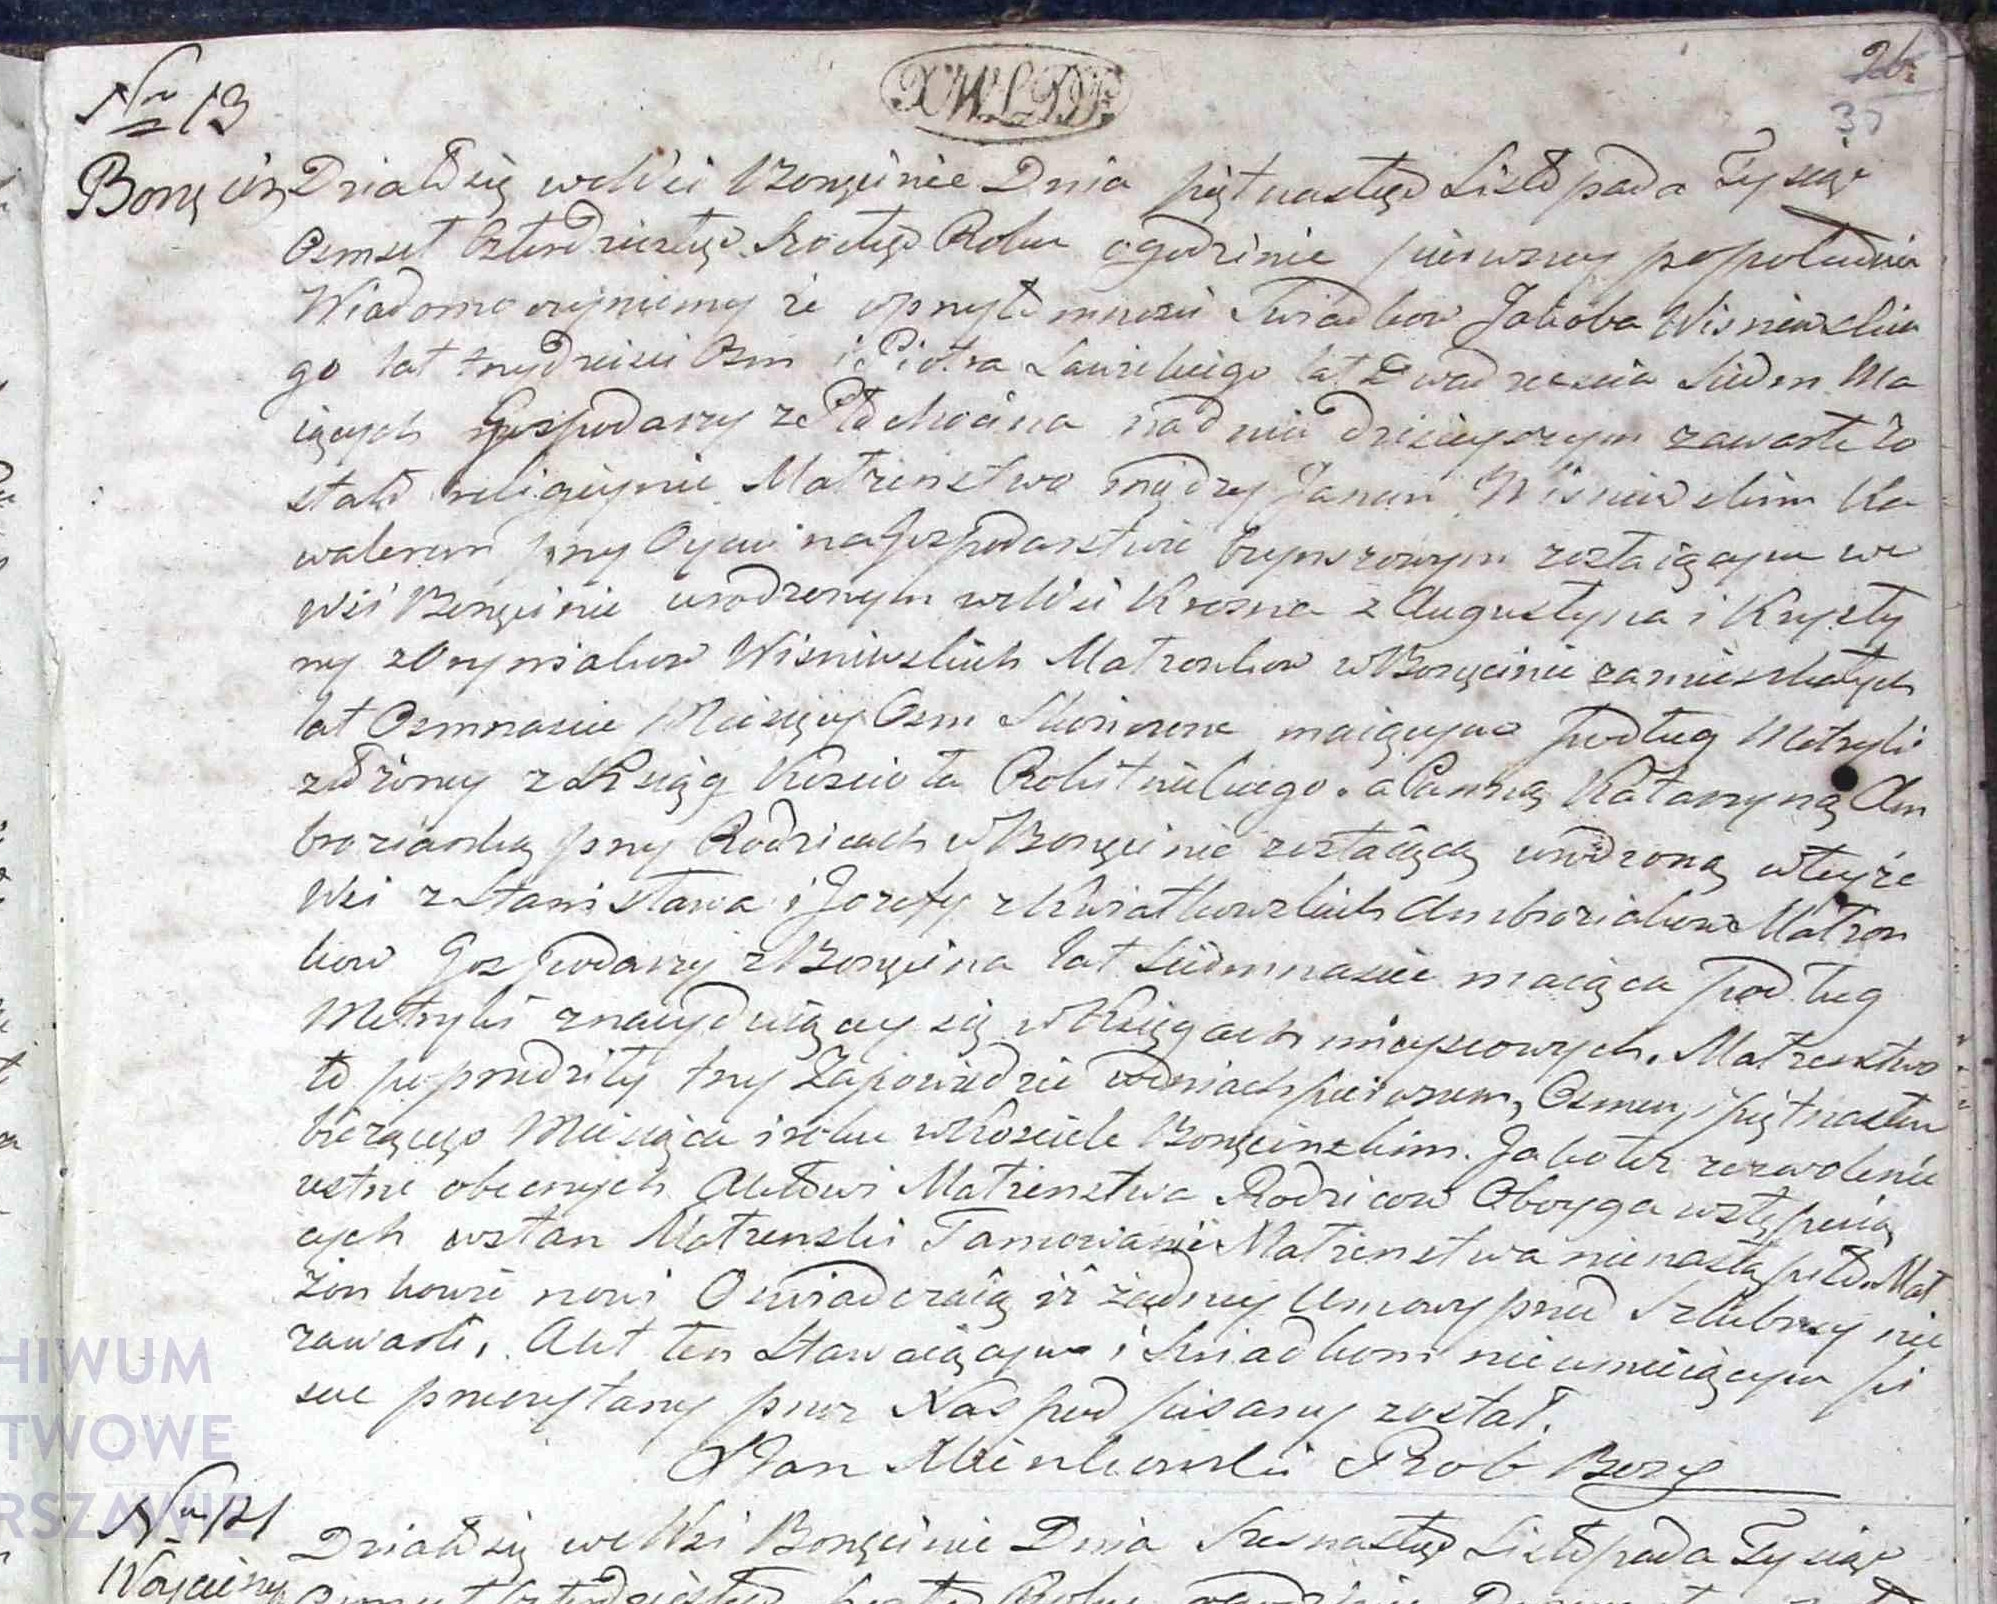 Nro 13
XWLDP.
26
35
Boręcin Działo się we Wsi Boręcinie Dnia piętnastego Listopada Tysiąc
Osmset Czterdziestego Szostego Roku o godzinie pierwszey popołudniu
Wiadomo czyniemy że w przytomnosci Swiadkow Jakoba Wisniewskie
go lat trzydziesci Osm i Piotra Sawickiego lat Dwadziescia Siedm Ma
iących Gospodarzy z Płochocina na dniu dzisieyszym zawarte zo
stało religiynie Małżenstwo między Janem Wisniewskim Ka
walerem przy Oycu na Gospodarstwie Czynszowym zostaiącym we
Wsi Boręcinie urodzonym we Wsi Krosna z Augustyna i Krysty
ny z Wisniewskich Małżonkow w Boręcinie zamieszkałych
lat Osmnascie Miesięcy Osm Skonczone maiącym podług Metryki
złożoney z Ksiąg Koscioła Rokitnickiego. a Panną Katarzyną Am
broziaską przy Rodzicach w Boręcinie zostaiącą urodzoną w teyże
Wsi z Stanisława i Jozefy z Kwiatkowskich Ambroziakow Małżon
kow Gospodarzy z Boręcina lat Siedmnascie maiąca podług
Metryki znayduiącey się w Ksiegach mieyscowych. Małzenstwo
to poprzedziły trzy Zapowiedzie w dniach pierwszem, Osmem i piętnastem
bieżącego Miesiąca i roku w Kosciele Boręcinskim. Jako też zezwolenie
ustne obecnych Aktowi Małżenstwa Rodzicow Oboyga wstępuią
cych w stan Małżenski Tamowanie Małżenstwa nie nastąpiło. Mał
żonkowie nowi Oswiadczaią iż żadney Umowy przed Szlubney nie
zawarli. Akt ten Stawaiącym i Swiadkom nieumieiącym pi
sac przeczytany przez Nas podpisany został.
X Jan Minkowski Prob Borę
Nro 14
Działo się we Wsi Boręcinie Dnia Szesnastego Listopada Tysiąc
HIWUM
TWOWE
RSZAWIE